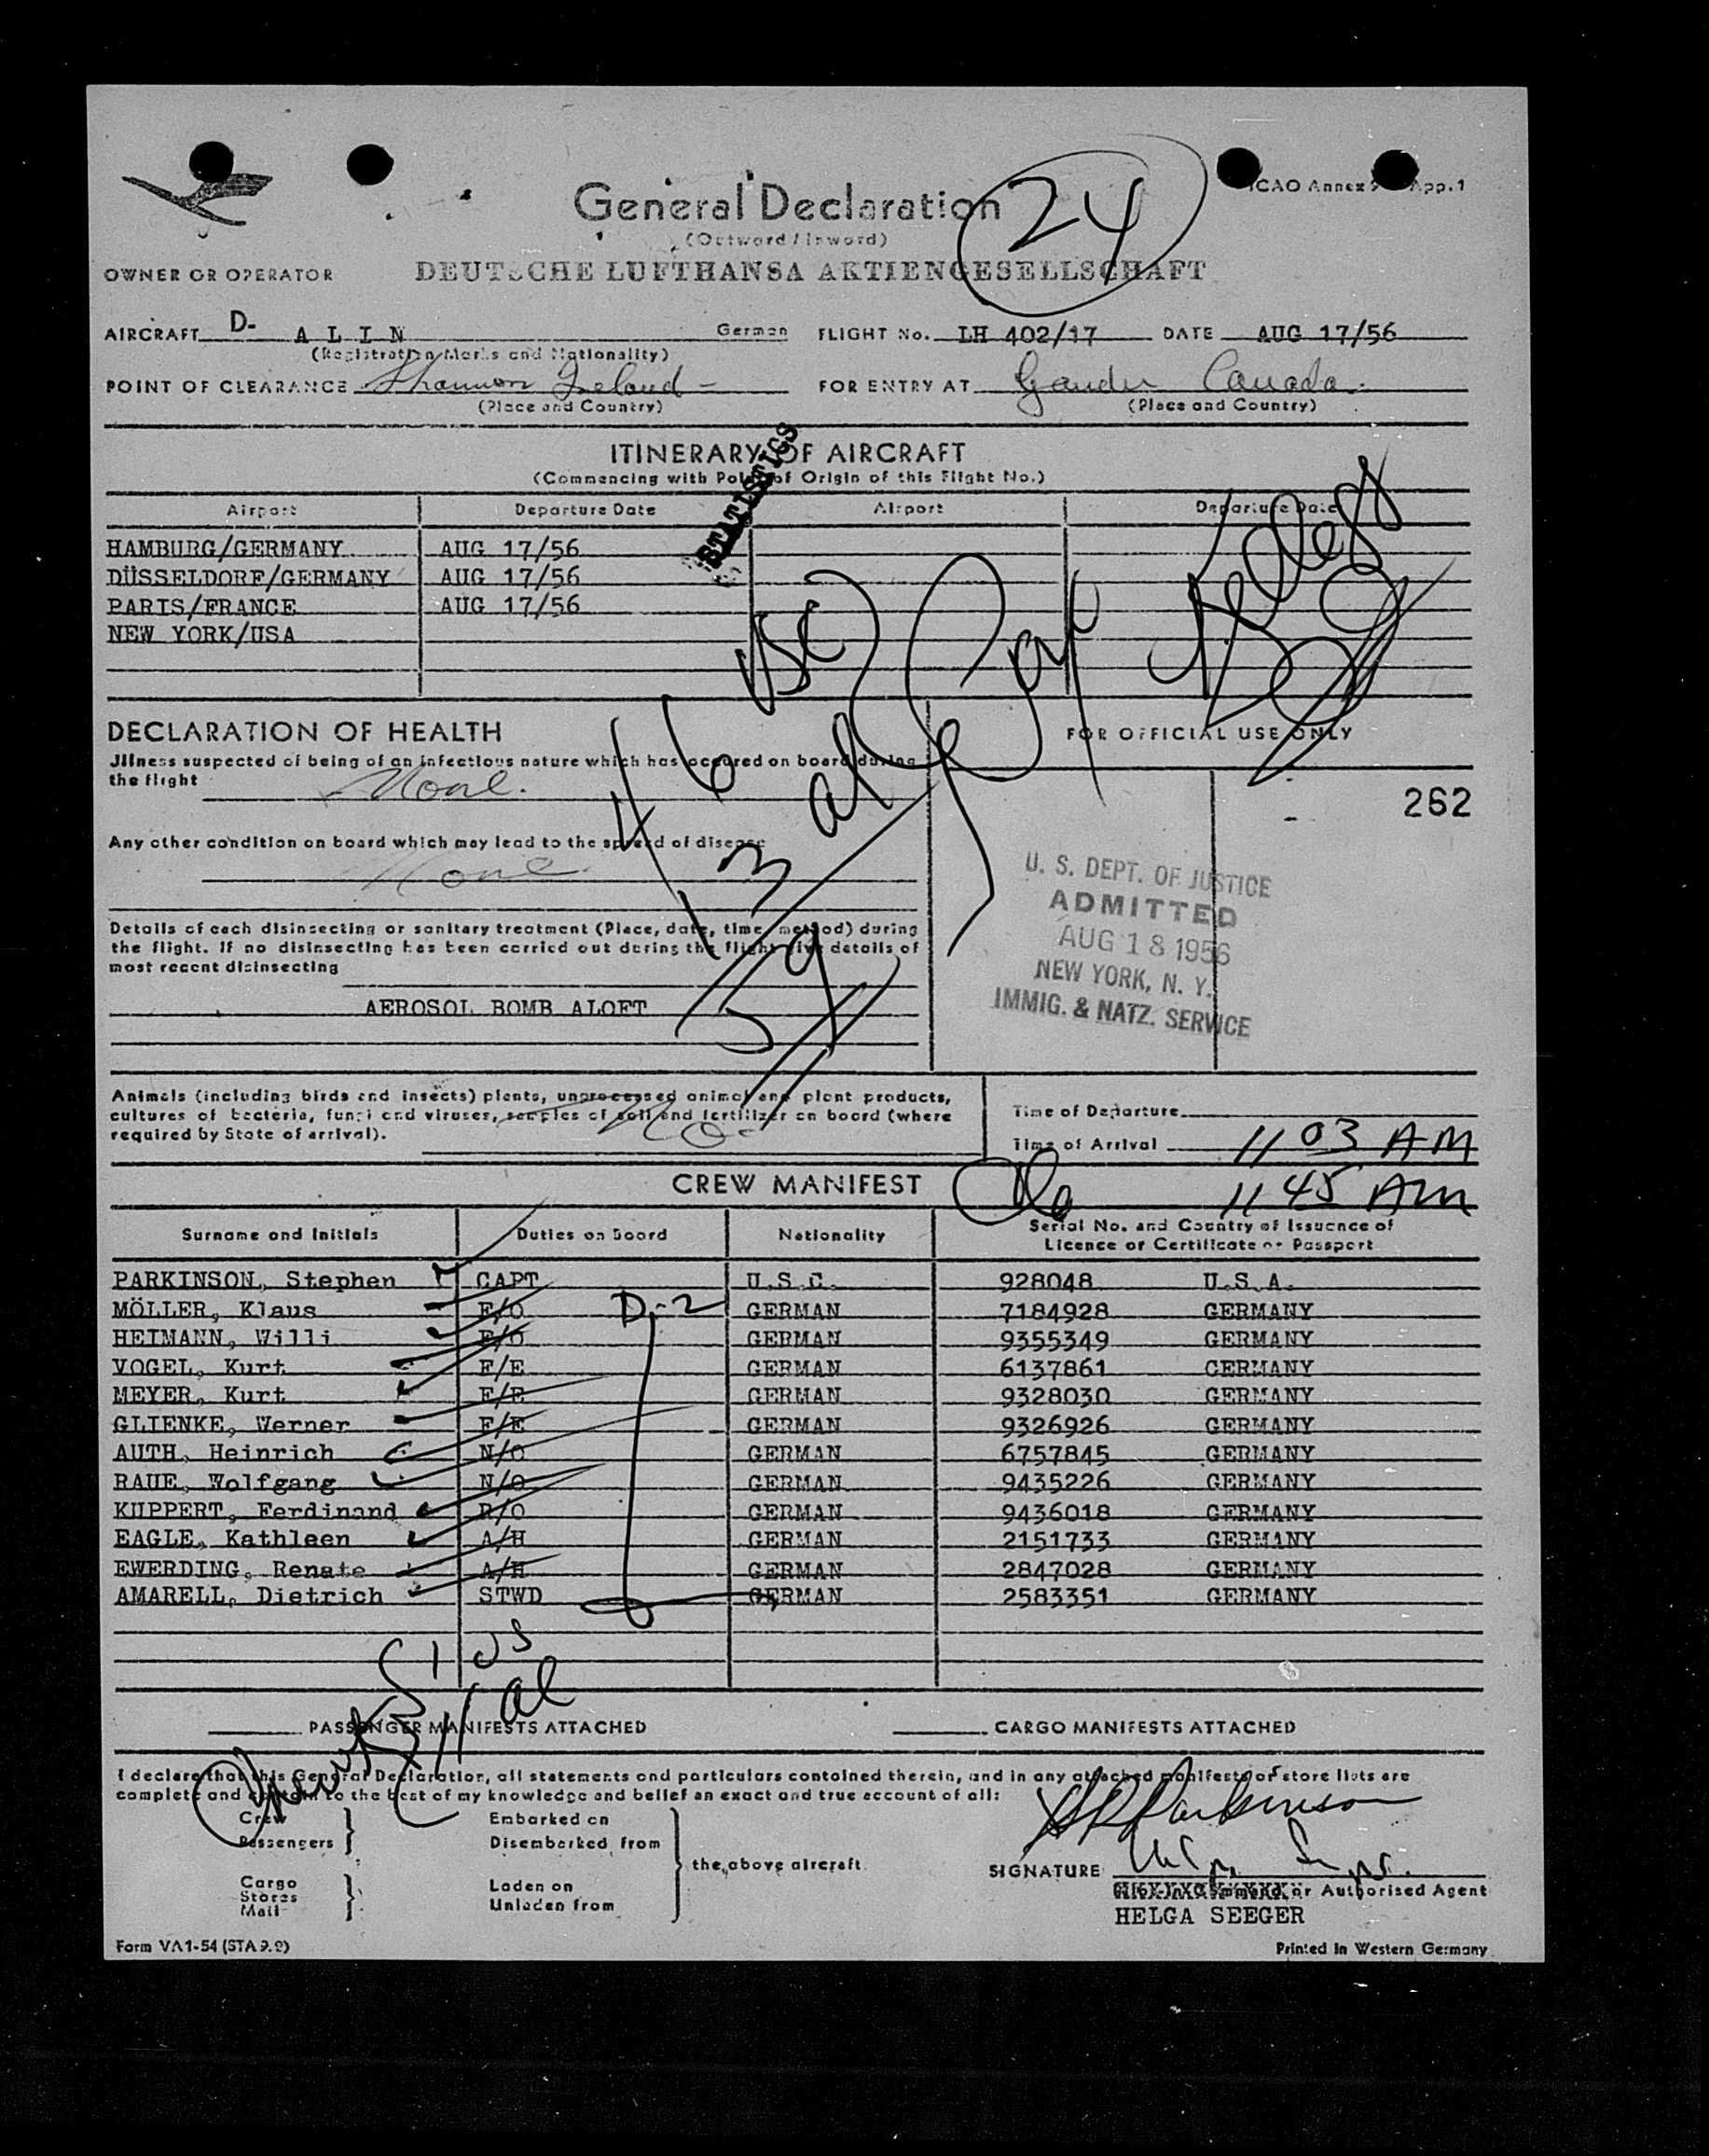 ICAO Annex 9 App.1
General Declaration
24
(Outward / Inward)
OWNER OR OPERATOR DEUTSCHE LUFTHANSA AKTIENGESELLSCHAFT
AIRCRAFT D- A L I N German FLIGHT No. LH 402/17 DATE AUG 17/56
(Registration Marks and Nationality)
POINT OF CLEARANCE Shannon Ireland - FOR ENTRY AT Gander Canada.
(Place and Country) (Place and Country)
ITINERARY OF AIRCRAFT
(Commencing with Point of Origin of this Flight No.)
STATISTICS
Airport Departure Date Airport Departure Date
HAMBURG/GERMANY AUG 17/56
DÜSSELDORF/GERMANY AUG 17/56
PARIS/FRANCE AUG 17/56
NEW YORK/USA
46 USC
13 al
59
DECLARATION OF HEALTH FOR OFFICIAL USE ONLY
Illness suspected of being of an infectious nature which has occured on board during
the flight None.
262
Any other condition on board which may lead to the spread of disease
None
U. S. DEPT. OF JUSTICE
ADMITTED
AUG 18 1956
NEW YORK, N. Y.
IMMIG. & NATZ. SERVICE
Details of each disinsecting or sanitary treatment (Place, date, time, method) during
the flight. If no disinsecting has been carried out during the flight give details of
most recent disinsecting
AEROSOL BOMB ALOFT
Animals (including birds and insects) plants, unprocessed animal and plant products,
cultures of bacteria, fungi and viruses, samples of soil and fertilizer on board (where
required by State of arrival). No-
Time of Departure
Time of Arrival 11 03 AM
11 45 AM
CREW MANIFEST
Surname and Initials Duties on Board Nationality Serial No. and Country of Issuance of
Licence or Certificate or Passport
PARKINSON, Stephen CAPT U.S.C. 928048 U.S.A.
MÖLLER, Klaus F/O D-2 GERMAN 7184928 GERMANY
HEIMANN, Willi F/O GERMAN 9355349 GERMANY
VOGEL, Kurt F/E GERMAN 6137861 GERMANY
MEYER, Kurt F/E GERMAN 9328030 GERMANY
GLIENKE, Werner F/E GERMAN 9326926 GERMANY
AUTH, Heinrich N/O GERMAN 6757845 GERMANY
RAUE, Wolfgang N/O GERMAN 9435226 GERMANY
KUPPERT, Ferdinand R/O GERMAN 9436018 GERMANY
EAGLE, Kathleen A/H GERMAN 2151733 GERMANY
EWERDING, Renate A/H GERMAN 2847028 GERMANY
AMARELL, Dietrich STWD GERMAN 2583351 GERMANY
1 US
11 al
PASSENGER MANIFESTS ATTACHED CARGO MANIFESTS ATTACHED
I declare that this General Declaration, all statements and particulars contained therein, and in any attached manifests or store lists are
complete and contain to the best of my knowledge and belief an exact and true account of all:
Crew Embarked on
Passengers Disembarked from
the above aircraft.
Cargo Laden on
Stores
Mail Unladen from
SRParkinson
SIGNATURE
or Authorised Agent
HELGA SEEGER
Form VA1-54 (STA 9.9) Printed in Western Germany